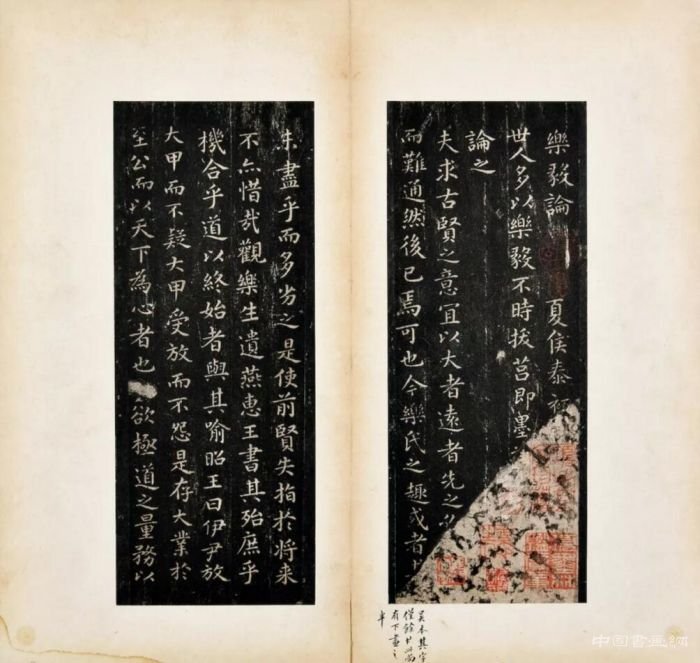 樂毅論 夏侯泰
世人多以樂毅不時拔莒即墨
論之
夫求古賢之意宜以大者遠者先之
而難通然後已焉可也今樂氏之趣或者
未盡乎而多劣之是使前賢失指於將来
不亦惜哉觀樂生遺燕惠王書其殆庶乎
機合乎道以終始者與其喻昭王曰伊尹放
大甲而不疑大甲受放而不怨是存大業於
至公而以天下為心者也 欲極道之量務以
吳本其字
僅餘
有下畫之
半
中國書畫網